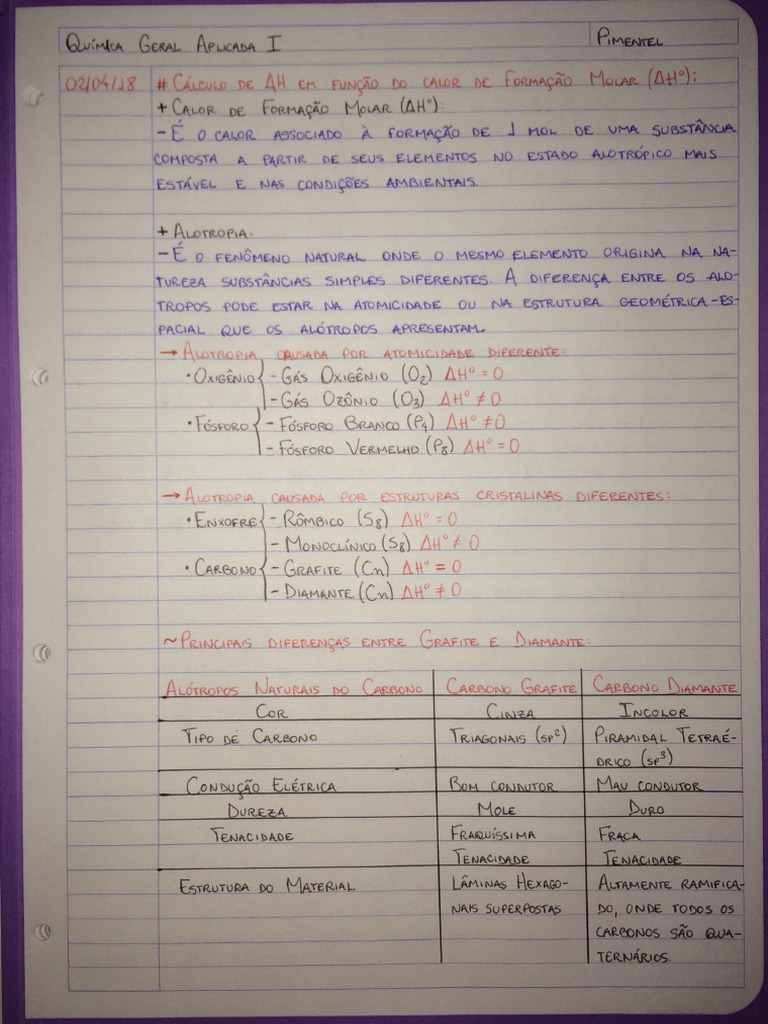 Química Geral Aplicada I Pimentel
02/04/18 # Cálculo de ΔH em função do calor de Formação Molar (ΔHº):
+ Calor de Formação Molar (ΔHº):
- É o calor associado à formação de 1 mol de uma substância
composta a partir de seus elementos no estado alotrópico mais
estável e nas condições ambientais.
+ Alotropia:
- É o fenômeno natural onde o mesmo elemento origina na na-
tureza substâncias simples diferentes. A diferença entre os aló-
tropos pode estar na atomicidade ou na estrutura geométrica-es-
pacial que os alótropos apresentam.
→ Alotropia causada por atomicidade diferente:
• Oxigênio { - Gás Oxigênio (O₂) ΔHº = 0
- Gás Ozônio (O₃) ΔHº ≠ 0
• Fósforo { - Fósforo Branco (P₄) ΔHº ≠ 0
- Fósforo Vermelho (P₈) ΔHº = 0
→ Alotropia causada por estruturas cristalinas diferentes:
• Enxofre { - Rômbico (S₈) ΔHº = 0
- Monoclínico (S₈) ΔHº ≠ 0
• Carbono { - Grafite (Cn) ΔHº = 0
- Diamante (Cn) ΔHº ≠ 0
~ Principais diferenças entre Grafite e Diamante:
Alótropos Naturais do Carbono Carbono Grafite Carbono Diamante
Cor Cinza Incolor
Tipo de Carbono Triagonais (sp²) Piramidal Tetraé-
drico (sp³)
Condução Elétrica Bom condutor Mau condutor
Dureza Mole Duro
Tenacidade Fraquíssima Fraca
Tenacidade Tenacidade
Estrutura do Material Lâminas Hexago- Altamente ramifica-
nais superpostas do, onde todos os
carbonos são qua-
ternários.